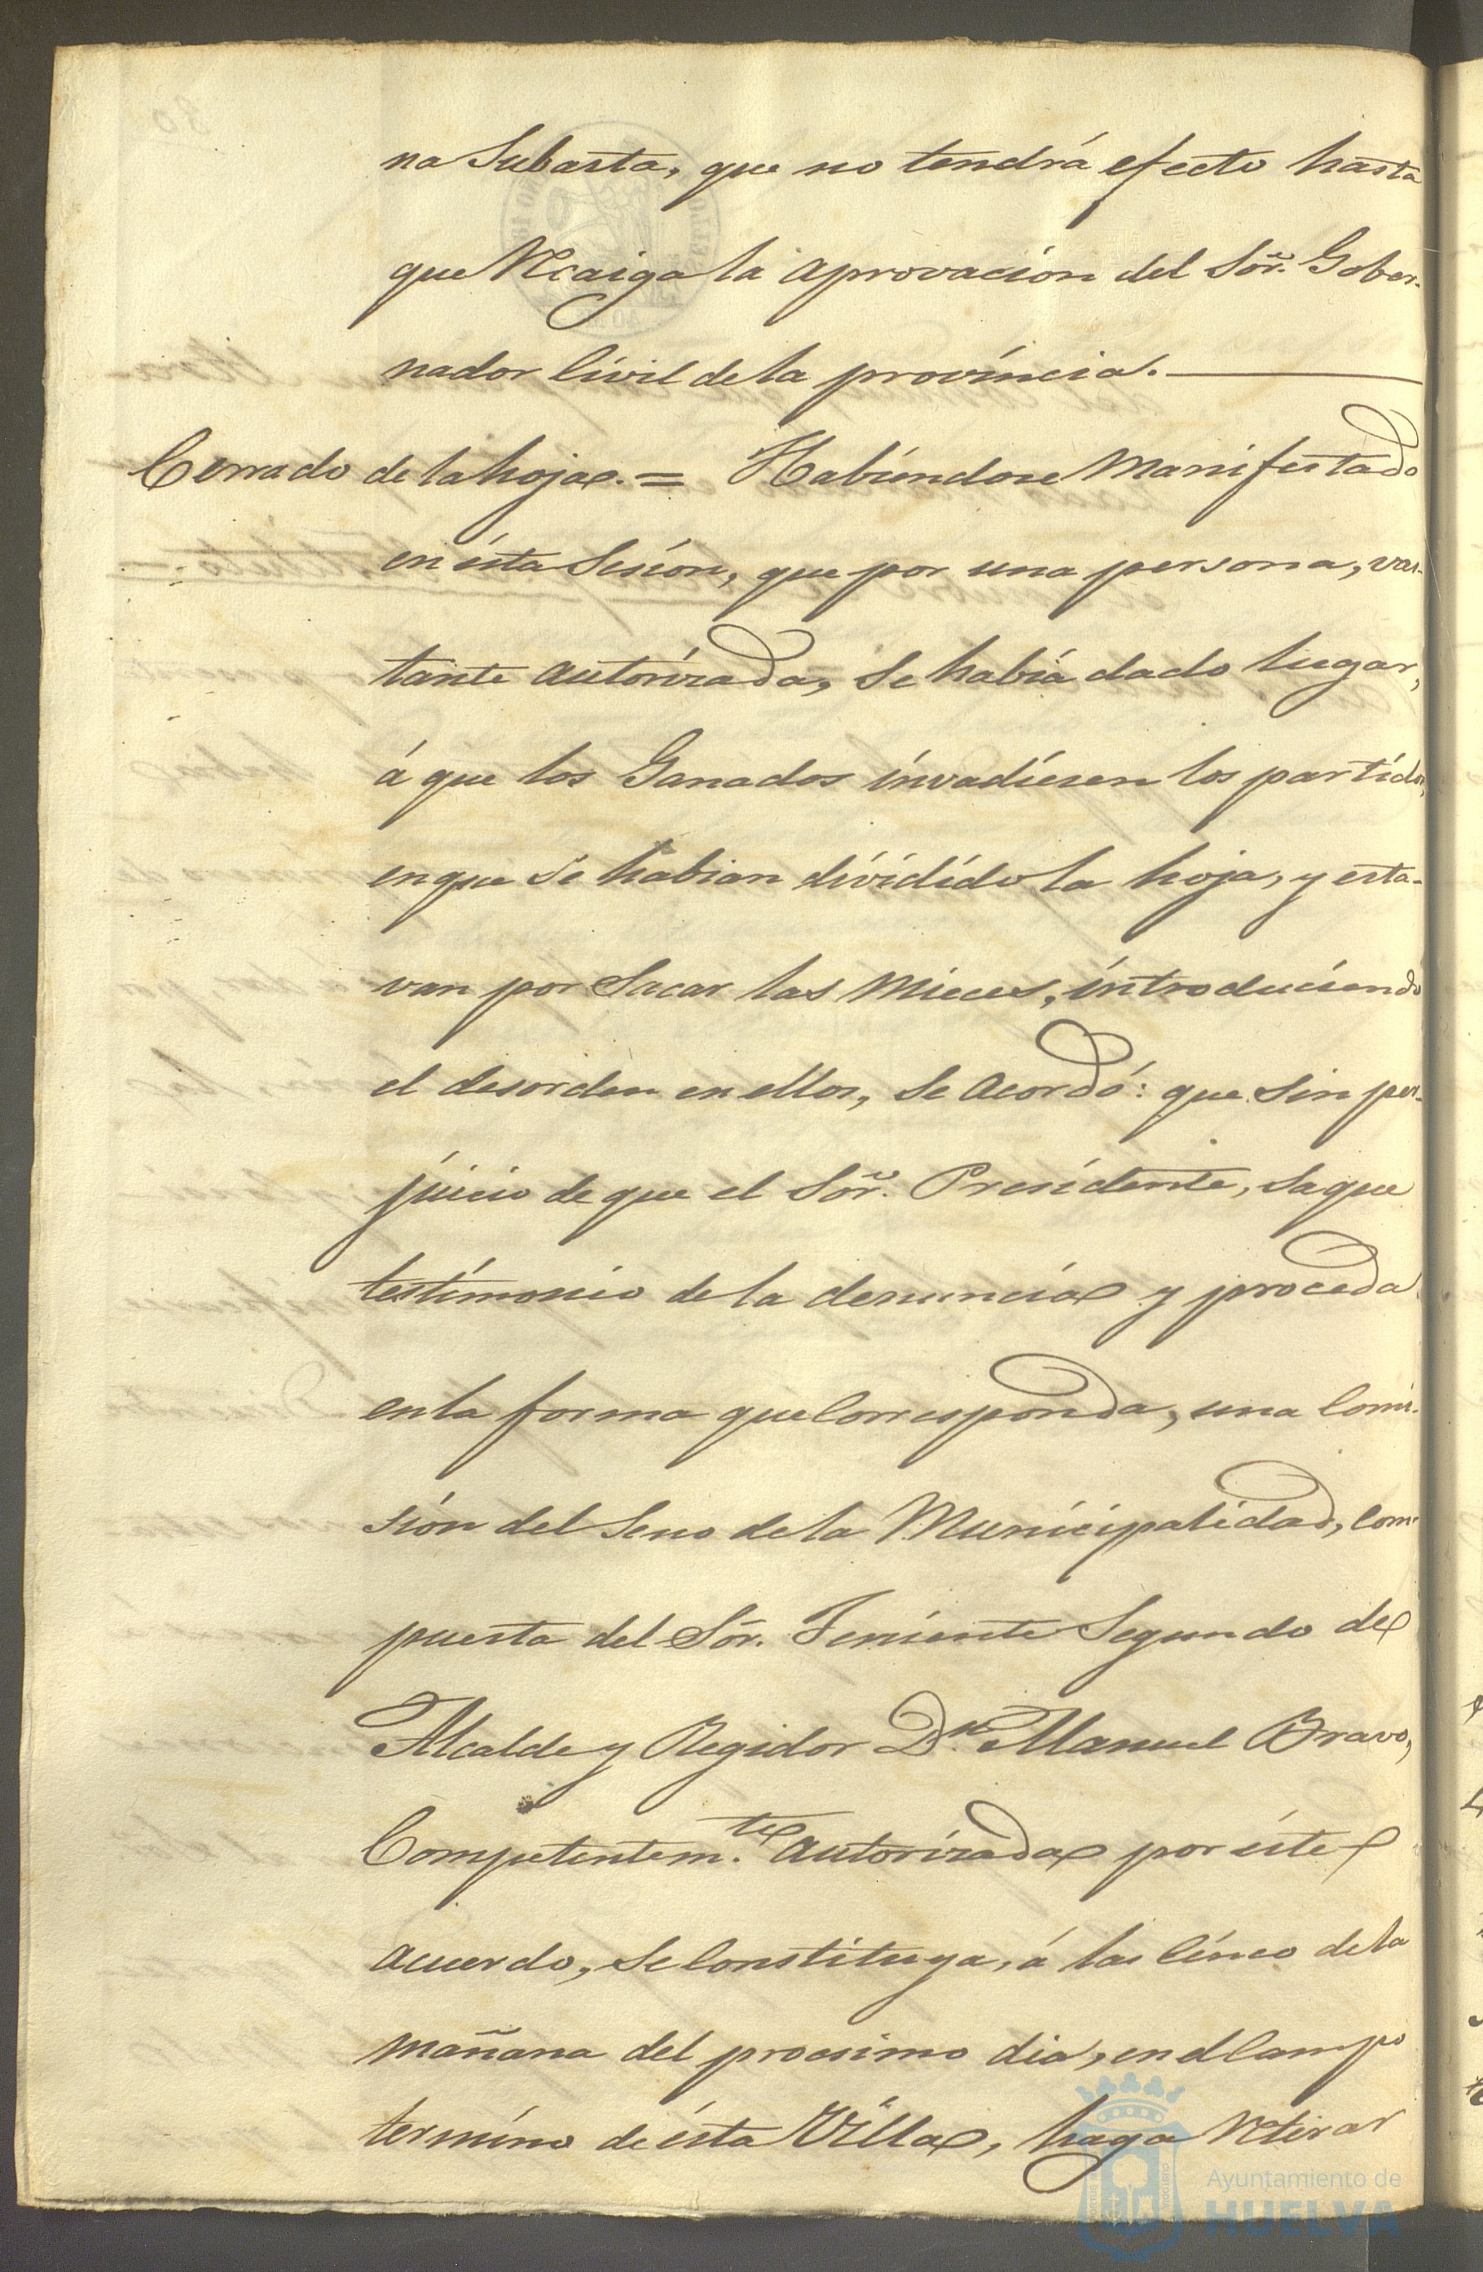 na Subasta, que no tendrá efecto hasta
que recaiga la aprovacion del Sōr. Gober-
nador Civil de la provincia.
Cerrado de la hoja. = Habiendose Manifestado
en ésta Sesion, que por una persona, vas-
tante autorizada, se había dado lugar,
á que los Ganados invadiesen los partidos,
en que se habian dividido la hoja, y esta-
van por Sacar las Mieces, introduciendo
el desorden en ellos, se acordó: que sin per-
juicio de que el Sōr. Presidente, saque
testimonio de la denuncia y proceda
en la forma que Corresponda, una Comi-
sion del Seno de la Municipalidad, com-
puesta del Sōr. Teniente Segundo de
Alcalde y Regidor Dn. Manuel Bravo,
Competentem.te autorizada por éste
acuerdo, se Constituya, á las Cinco de la
mañana del procsimo dia, en el Campo
termino de ésta Villa, haga retirar
Ayuntamiento de
HUELVA